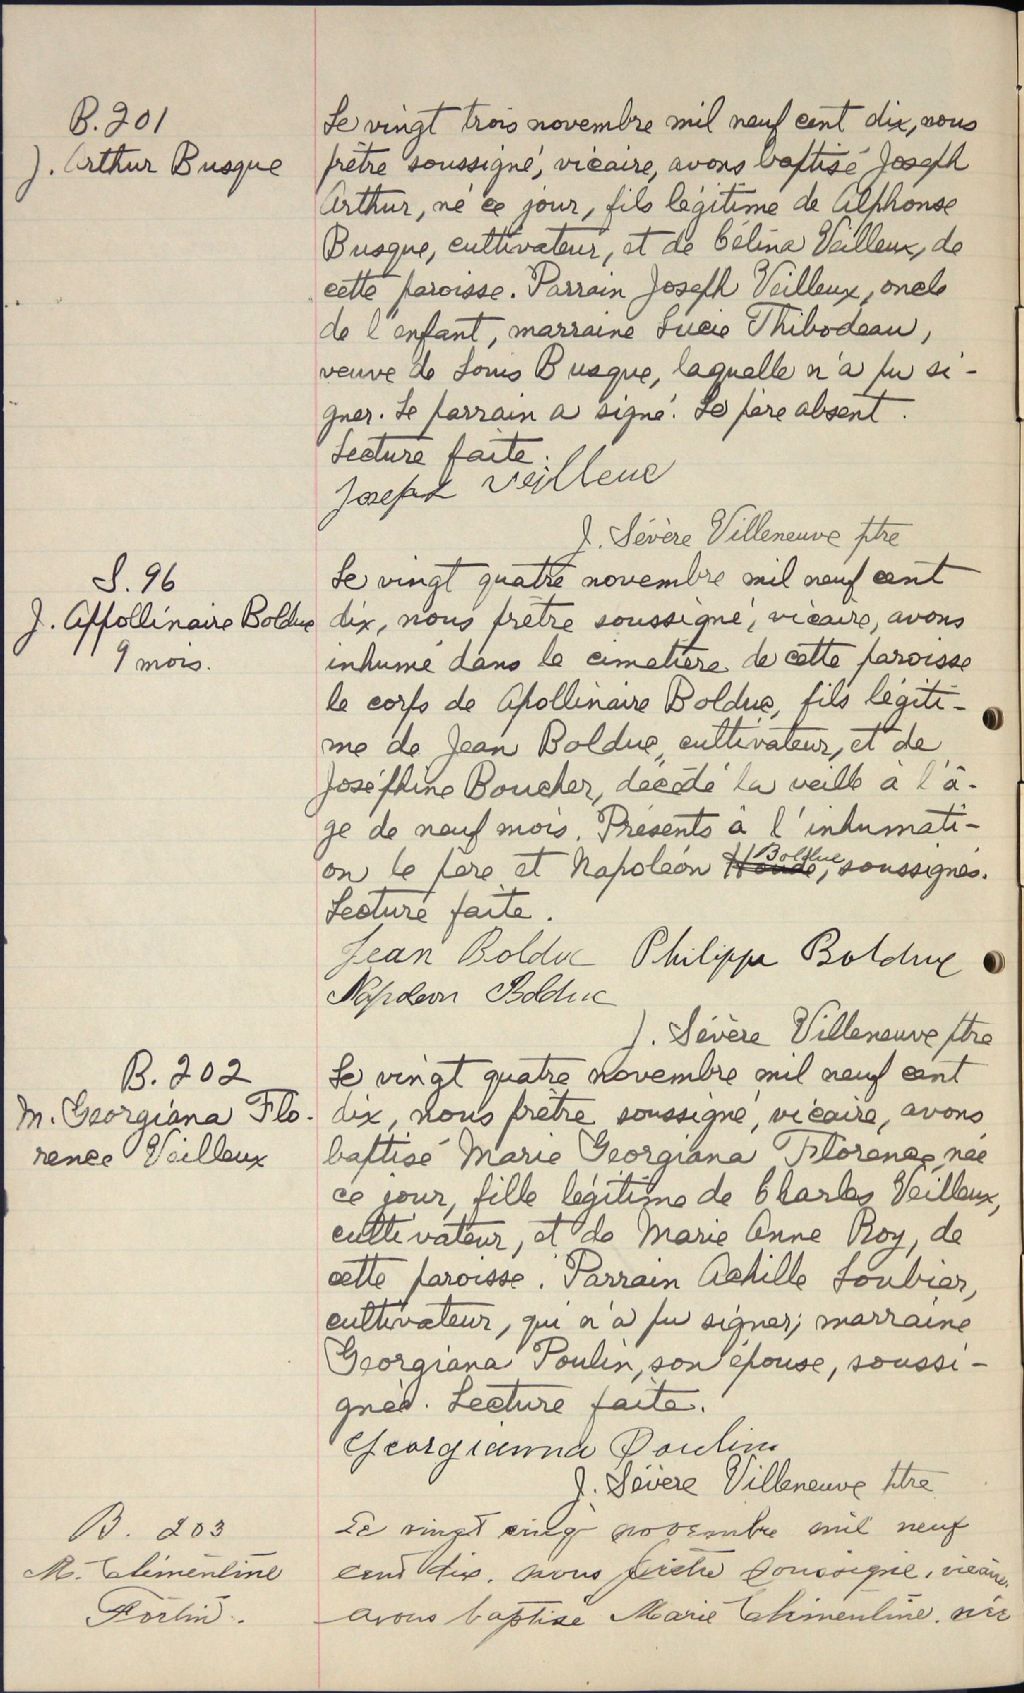 B. 201
J. Arthur Busque
Le vingt trois novembre mil neuf cent dix, nous
prêtre soussigné, vicaire, avons baptisé Joseph
Arthur, né ce jour, fils légitime de Alphonse
Busque, cultivateur, et de Célina Veilleux, de
cette paroisse. Parrain Joseph Veilleux, oncle
de l'enfant, marraine Lucie Thibodeau,
veuve de Louis Busque, laquelle n'a pu si-
gner. Le parrain a signé. Le père absent.
Lecture faite.
Joseph Veilleux
J. Sévère Villeneuve ptre
S. 96
J. Appollinaire Bolduc
9 mois.
Le vingt quatre novembre mil neuf cent
dix, nous prêtre soussigné, vicaire, avons
inhumé dans le cimetière de cette paroisse
le corps de Apollinaire Bolduc, fils légiti-
me de Jean Bolduc, cultivateur, et de
Joséphine Boucher, décédé la veille à l'â-
ge de neuf mois. Présents à l'inhumati-
on le père et Napoléon Houde, Bolduc soussignés.
Lecture faite.
Jean Bolduc Philippe Bolduc
Napoleon Bolduc
J. Sévère Villeneuve ptre
B. 202
M. Georgiana Flo-
rence Veilleux
Le vingt quatre novembre mil neuf cent
dix, nous prêtre soussigné, vicaire, avons
baptisé Marie Georgiana Florence, née
ce jour, fille légitime de Charles Veilleux,
cultivateur, et de Marie Anne Roy, de
cette paroisse. Parrain Achille Loubier,
cultivateur, qui n'a pu signer; marraine
Georgiana Poulin, son épouse, soussi-
gnée. Lecture faite.
Georgianna Poulin
J. Sévère Villeneuve ptre
B. 203
M. Clementine
Fortin.
Le vingt cinq novembre mil neuf
cent dix, nous prêtre soussigné, vicaire,
avons baptisé Marie Clementine, née